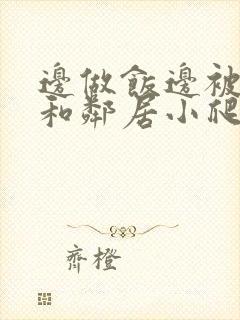 邊做飯邊被
和鄰居小爬
齊橙